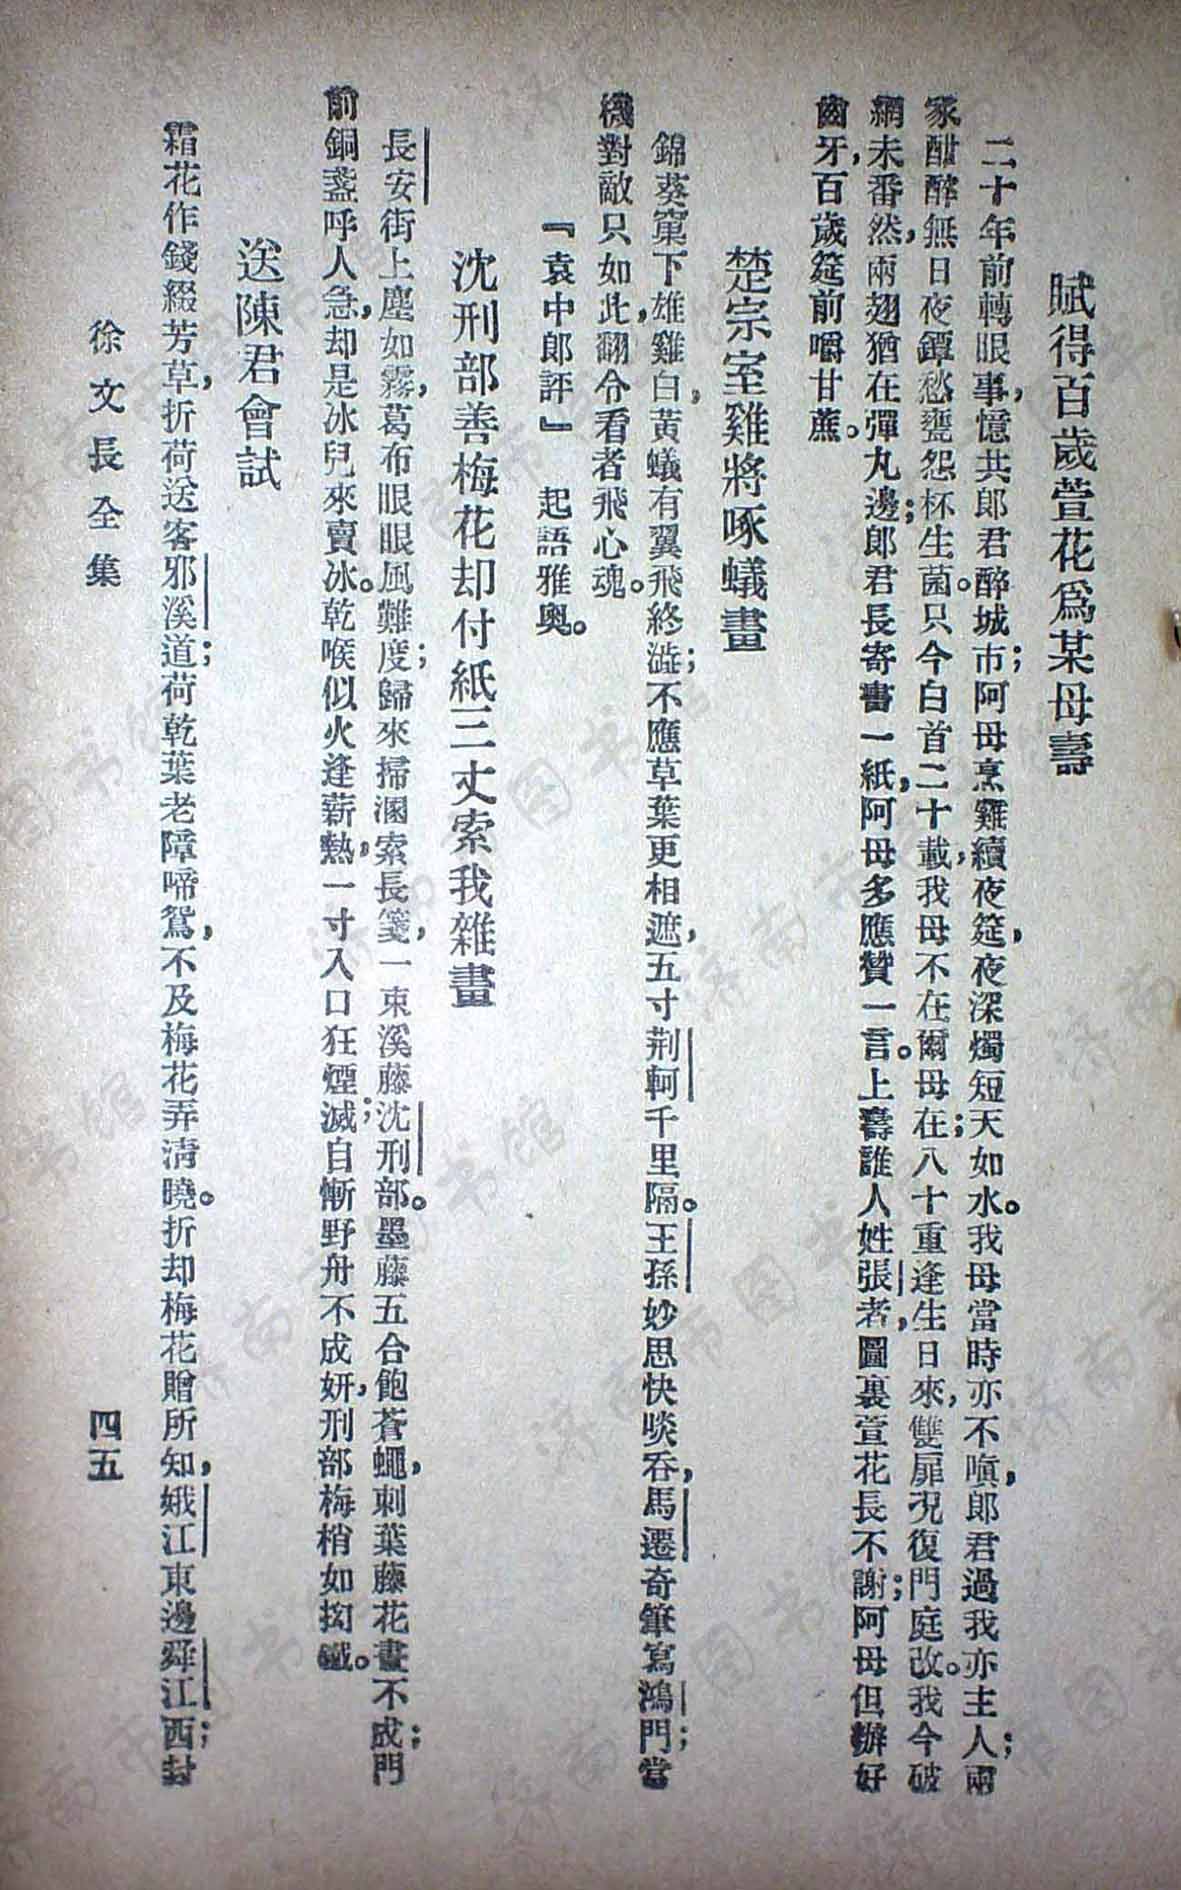 賦得百歲萱花爲某母壽
二十年前轉眼事，憶共郎君醉城市；阿母烹雞續夜筵，夜深燭短；天如水。我母當時亦不嗔，郎君過我亦主人；兩
家酣醉無日夜，鐔愁甕怨杯生菌。只今白首二十載，我母不在爾母在，八十重逢生日來，雙扉況復門庭改。我今破
網未番然，兩翅猶在彈丸邊；郎君長寄書一紙，阿母多應贊一言。上壽誰人姓張者，圖裏萱花長不謝；阿母但辦好
齒牙，百歲筵前嚼甘蔗。
楚宗室雞將啄蟻畫
錦葵窠下雄雞白，黃蟻有翼飛終澁；不應草葉更相遮，五寸荆軻千里隔。王孫妙思快啖吞，馬遷奇筆寫鴻門；當
機對敵只如此，翻令看者飛心魂。
『袁中郎評』　起語雅奥。
沈刑部善梅花却付紙三丈索我雜畫
長安街上塵如霧，葛布眼眼風難度；歸來掃溷索長箋，一束溪藤沈刑部。墨藤五合飽蒼蠅，刺葉藤花畫不成；門
前銅盞呼人急，却是冰兒來賣冰。乾喉似火逢薪熱，一寸入口狂煙滅；自慚野舟不成妍，刑部梅梢如拗鐵。
送陳君會試
霜花作錢綴芳草，折荷送客邪溪道；荷乾葉老障啼鴛，不及梅花弄清曉。折却梅花贈所知，娥江東邊舜江西；封
徐文長全集
四五